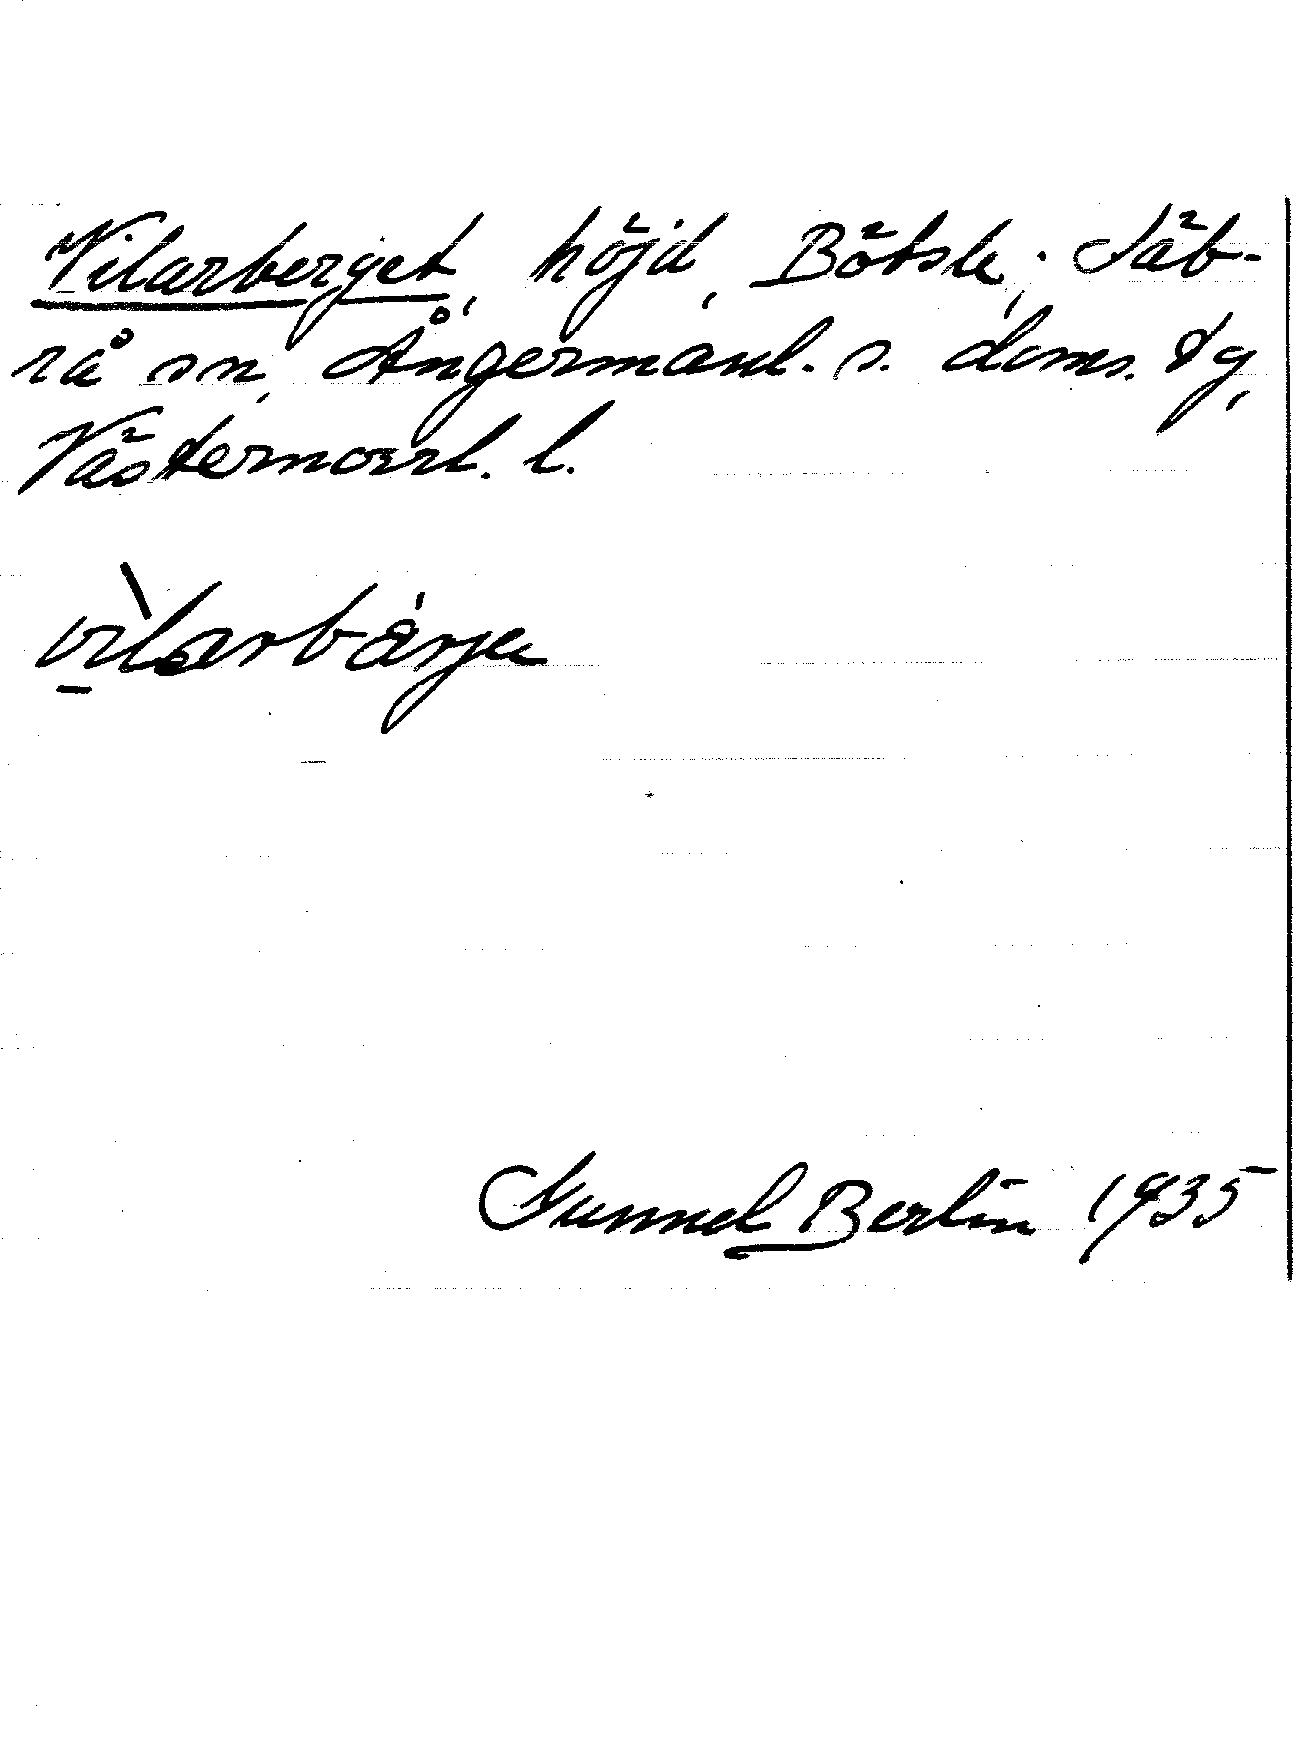 Vilarberget, höjd, Bötsle, Säb-
rå sn, Ångermanl. s. doms. tg,
Västernorrl. l.
vìlarbárje
Gunnel Berlin 1935